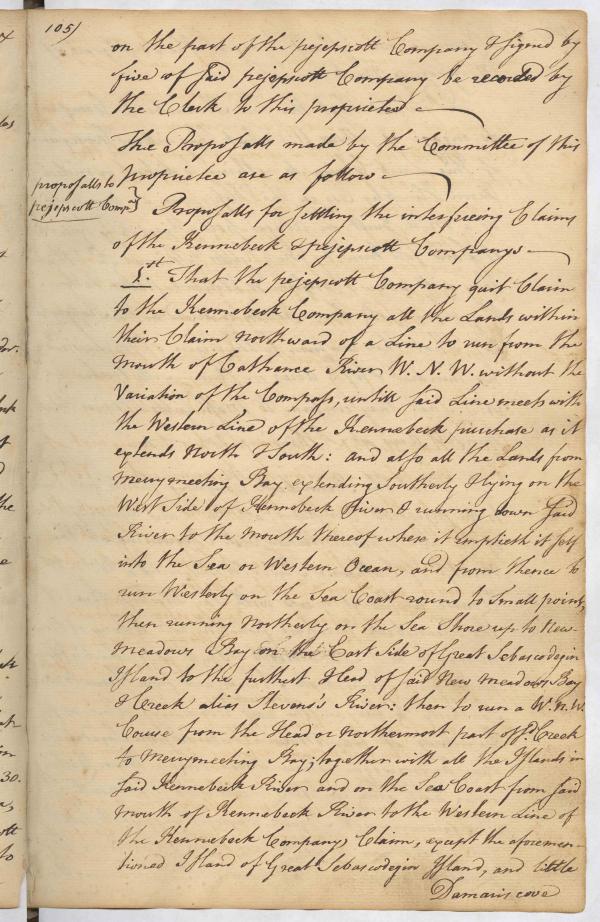 105/
on the part of the pejepscott Company & signed by
five of said pejepscott Company be recorded by
the Clerk to this proprietee
The Proposalls made by the Committee of this
proprietee are as follow
proposalls to
pejepscott Compa}
Proposalls for settling the interfering Claims
of the Kennebeck & pejepscott Companys
1.st That the pejepscott Company quit Claim
to the Kennebeck Company all the Lands within
their Claim northward of a Line to run from the
Mouth of Cathance River W. N. W. without the
Variation of the Compass, untill said Line meets with
the Western Line of the Kennebeck purchase as it
extends North & South: and also all the Lands from
merrymeeting Bay extending Southerly & lying on the
West Side of Kennebeck River & running down said
River to the mouth thereof where it emptieth it self
into the Sea or Western Ocean, and from thence to
run Westerly on the Sea Coast round to Small point,
then running Northerly on the Sea Shore up to New-
meadows Bay on the East Side of Great Sebascodegin
Island to the furthest Head of said New meadows Bay
& Creek alias Stevens's River: then to run a W. N. W.
Course from the Head or Northermost part of sd. Creek
to Merrymeeting Bay; together with all the Islands in
said Kennebeck River and on the Sea Coast from said
mouth of Kennebeck River to the Western Line of
the Kennebeck Companys Claim, except the aforemen-
tioned Island of Great Sebascodegin Island, and little
Damariscove